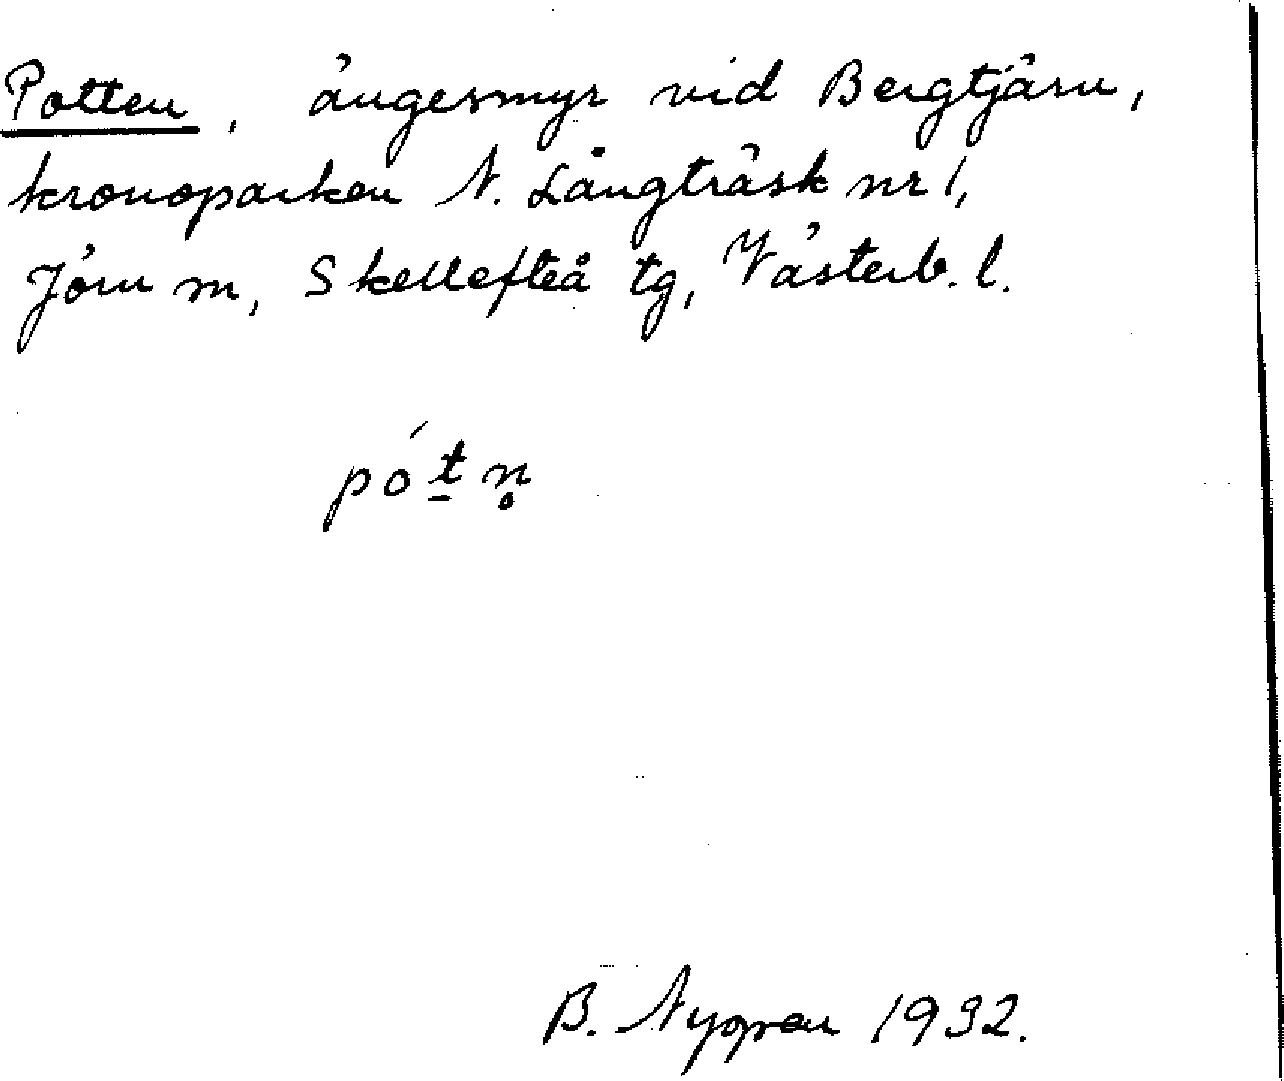 Potten, ängesmyr vid Bergtjärn,
kronoparken N. Långträsk nr 1,
Jörn m, Skellefteå tg, Västerb. l.
pót̠n̥
B. Nygren 1932.